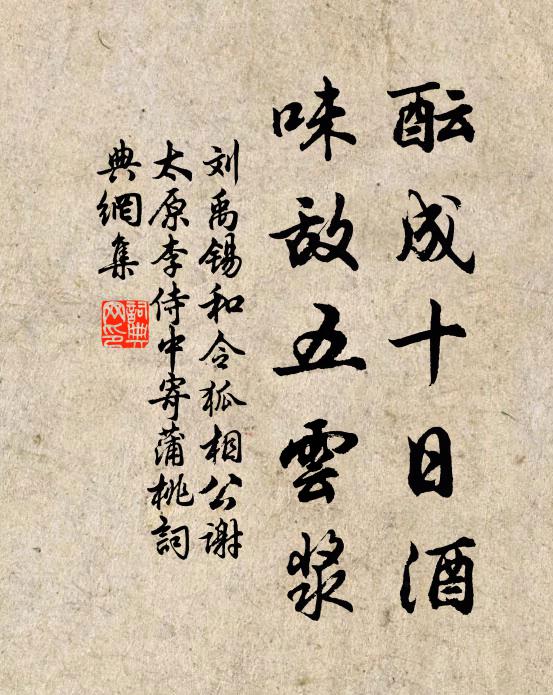 酝成十日酒
味敌五雲漿
刘禹锡和令狐相公谢
太原李侍中寄蒲桃詞
典網集
詞典
网印